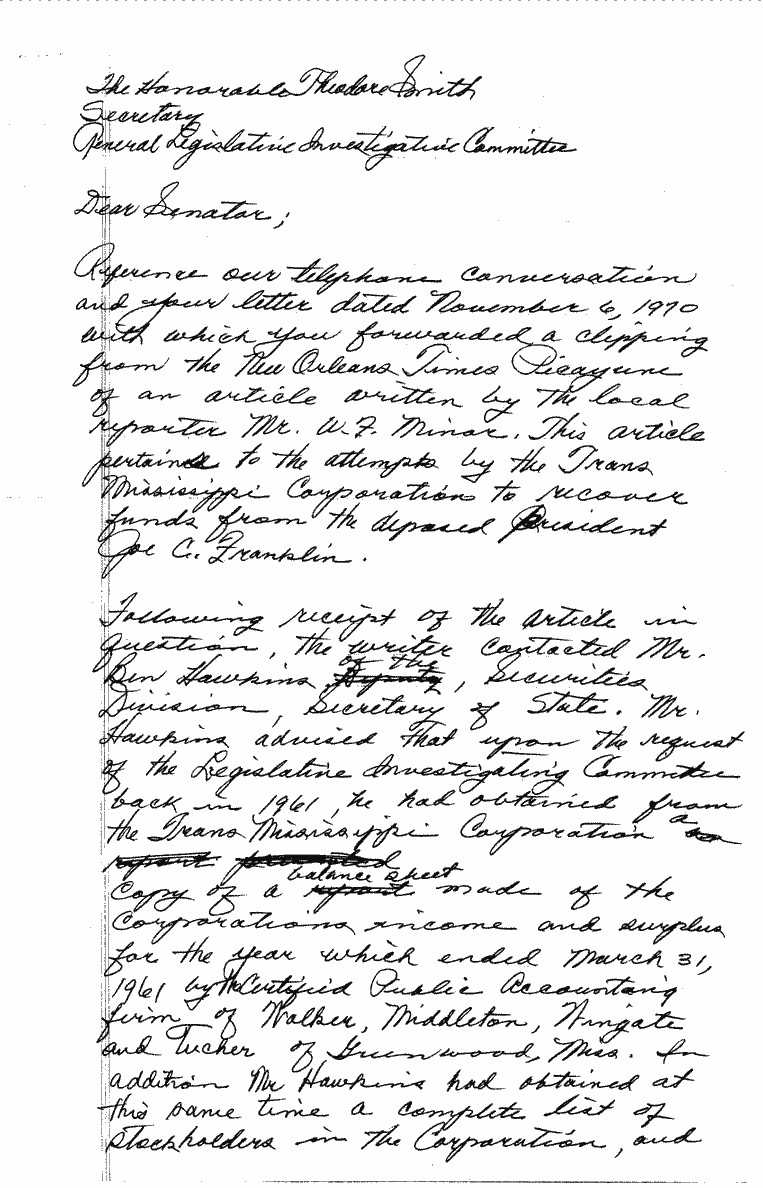 The Honorable Theodore Smith
Secretary
General Legislative Investigative Committee
Dear Senator;
Reference our telephone conversation
and your letter dated November 6, 1970
with which you forwarded a clipping
from the New Orleans Times Picayune
of an article written by the local
reporter Mr. W.F. Minor. This article
pertains to the attempts by the Trans
Mississippi Corporation to recover
funds from the deposed President
Joe C. Franklin.
Following receipt of the article in
question, the writer contacted Mr.
of the
Ben Hawkins Deputy, Securities
Division, Secretary of State. Mr.
Hawkins advised that upon the request
of the Legislative Investigating Committee
back in 1961, he had obtained from
the Trans Mississippi Corporation a
report
balance sheet
copy of a report made of the
Corporations income and surplus
for the year which ended March 31,
1961 by the Certified Public Accounting
firm of Walker, Middleton, Wingate
and Tucker of Greenwood, Miss. In
addition Mr Hawkins had obtained at
this same time a complete list of
stockholders in the Corporation, and